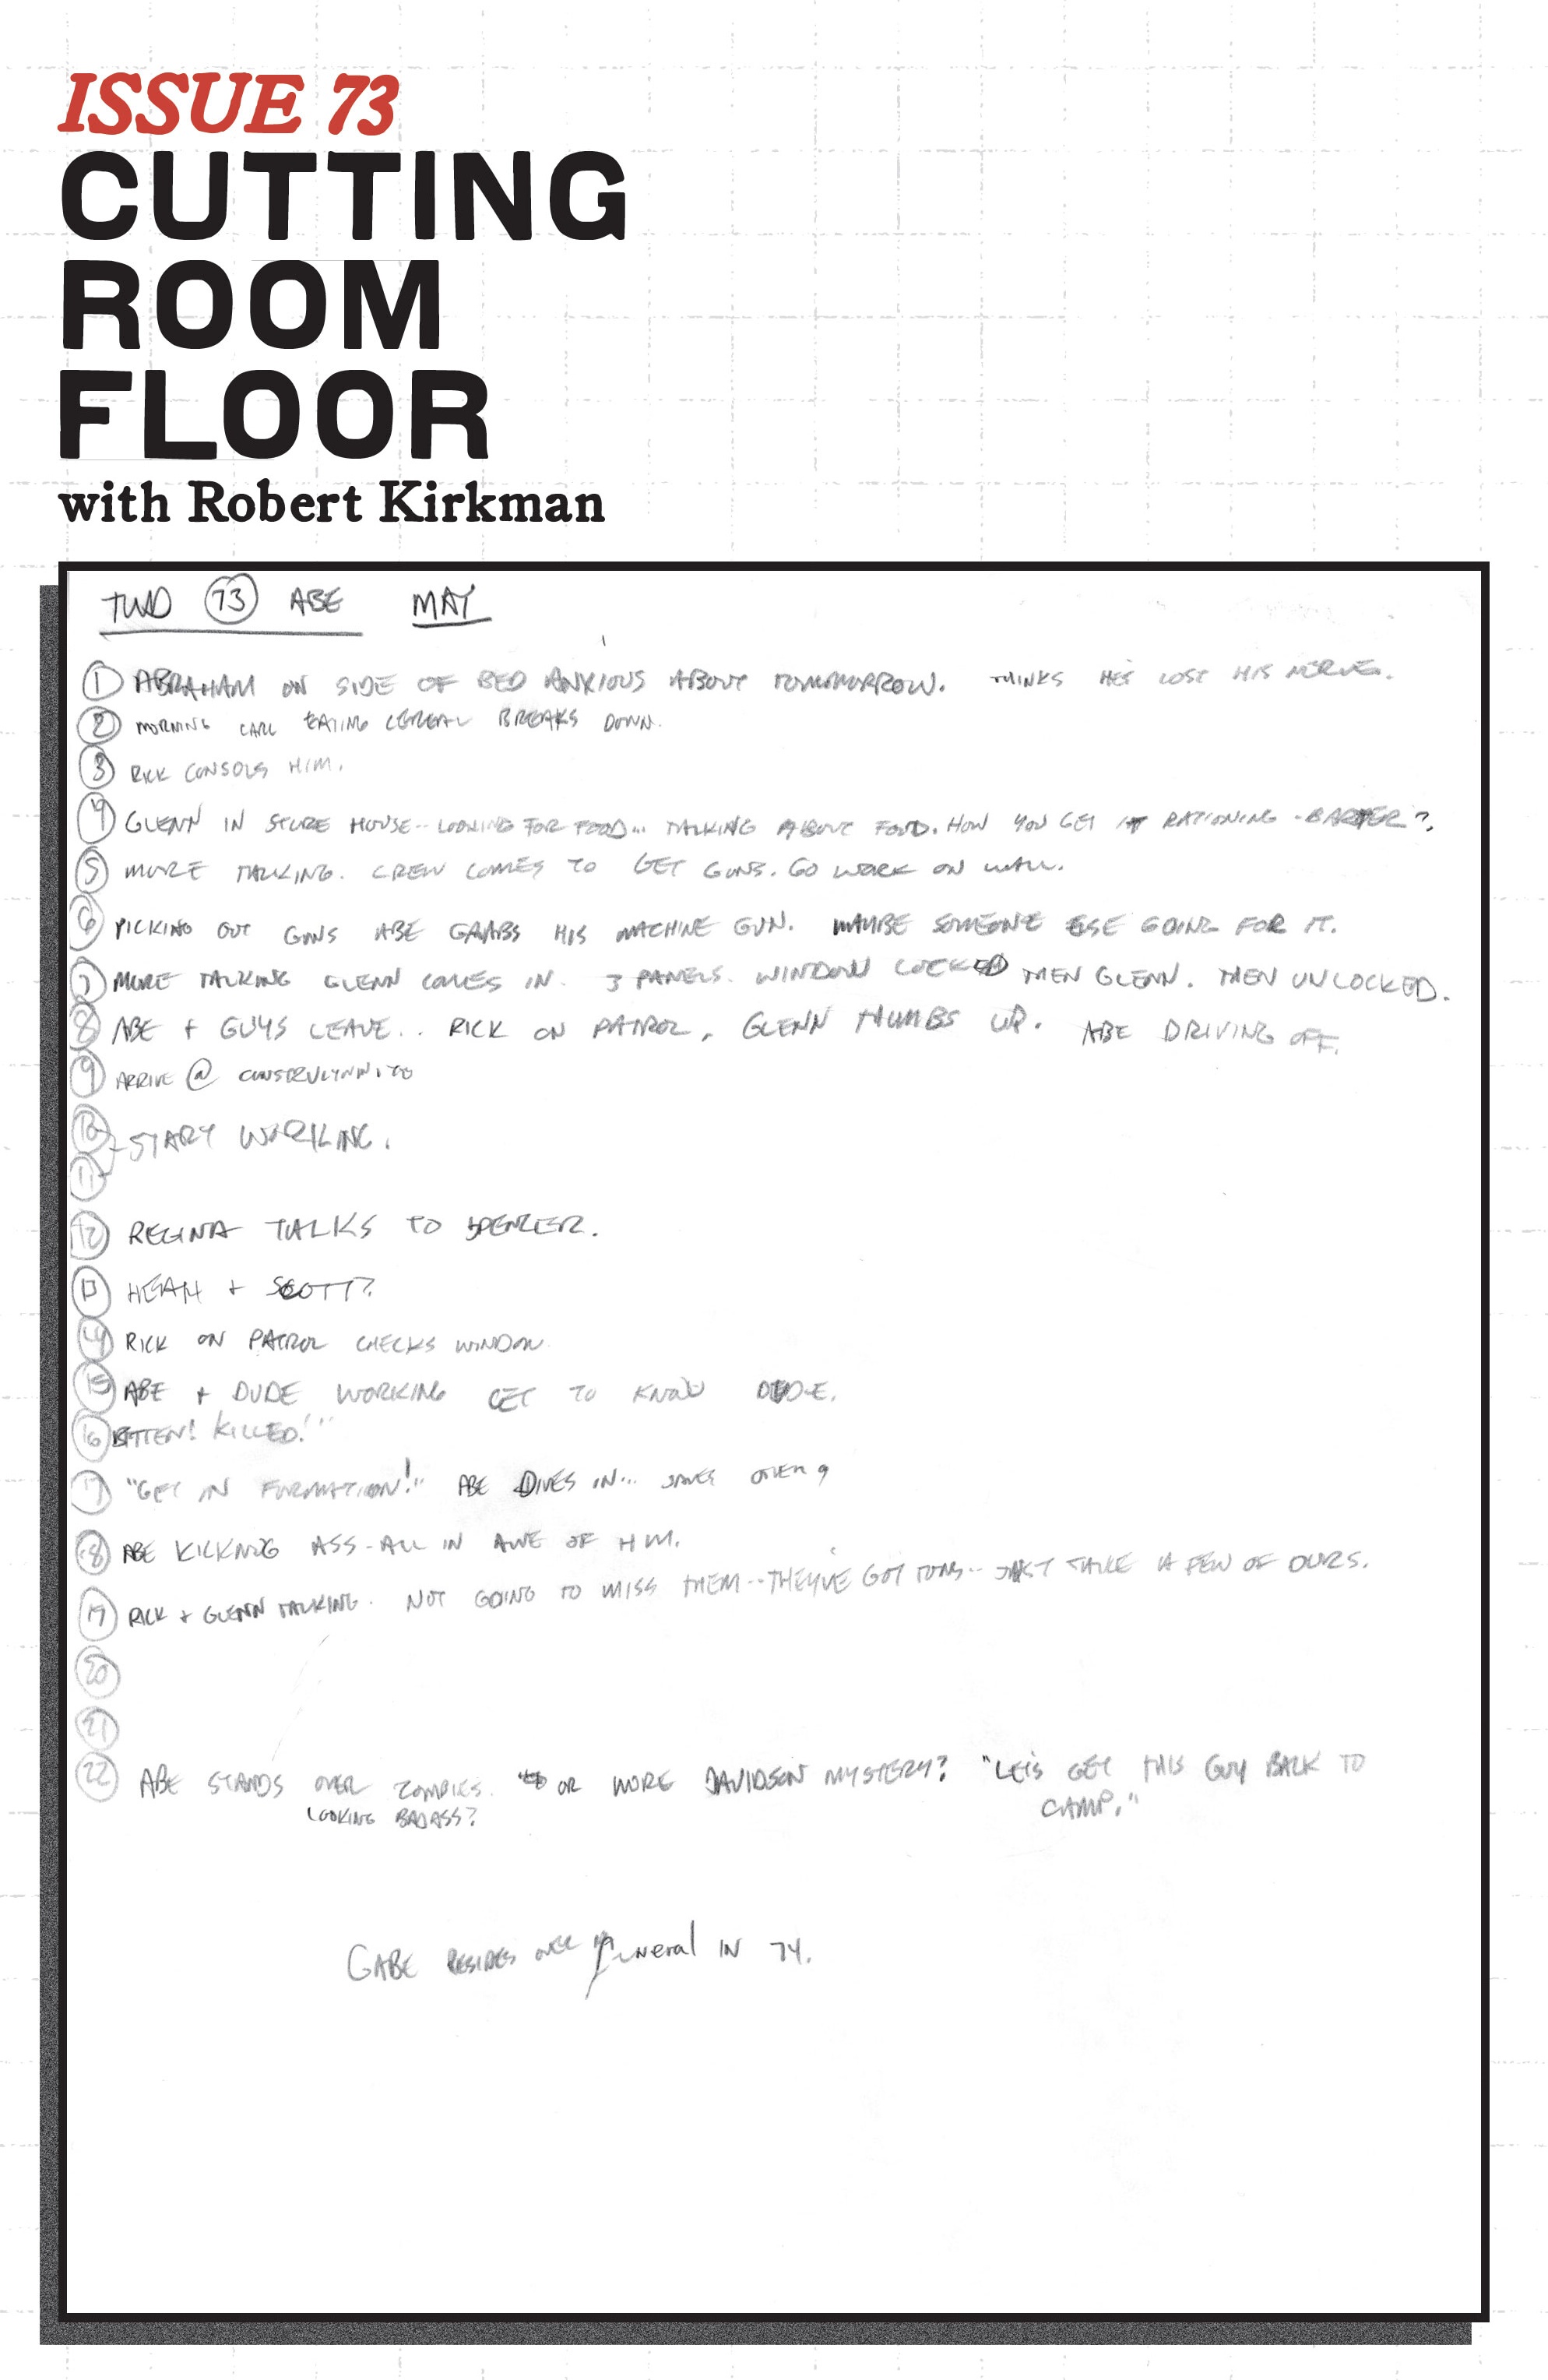 ISSUE 73
CUTTING
ROOM
FLOOR
with Robert Kirkman
TWD 73 ABE MAY
1 ABRAHAM ON SIDE OF BED ANXIOUS ABOUT TOMOMORROW. THINKS HE'S LOST HIS NERVE.
2 MORNING CARL EATING CEREAL BREAKS DOWN.
3 RICK CONSOLS HIM.
4 GLENN IN STORE HOUSE -- LOOKING FOR FOOD... TALKING ABOUT FOOD. HOW YOU GET IT RATIONING - BARTER?
5 MORE TALKING. CREW COMES TO GET GUNS. GO WORK ON WALL.
6 PICKING OUT GUNS ABE GRABS HIS MACHINE GUN. MAYBE SOMEONE ELSE GOING FOR IT.
7 MORE TALKING GLENN COMES IN. 3 PANELS. WINDOW LOCKED THEN GLENN. THEN UNLOCKED.
8 ABE + GUYS LEAVE.. RICK ON PATROL, GLENN THUMBS UP. ABE DRIVING OFF.
9 ARRIVE @
10 START WORKING.
11
12 REGINA TALKS TO SPENCER.
13 HEATH + SCOTT?
14 RICK ON PATROL CHECKS WINDOW
15 ABE + DUDE WORKING GET TO KNOW DUDE.
16 BITTEN! KILLED!"
17 "GET IN FORMATION!" ABE DIVES IN...
18 ABE KICKING ASS - ALL IN AWE OF HIM.
19 RICK + GLENN TALKING. NOT GOING TO MISS THEM -- THEY'VE GOT TONS -- JUST TAKE A FEW OF OURS.
20
21
22 ABE STANDS OVER ZOMBIES. OR MORE DAVIDSON MYSTERY? "LET'S GET THIS GUY BACK TO
LOOKING BADASS?
CAMP."
GABE RESIDES OVER funeral IN 74.